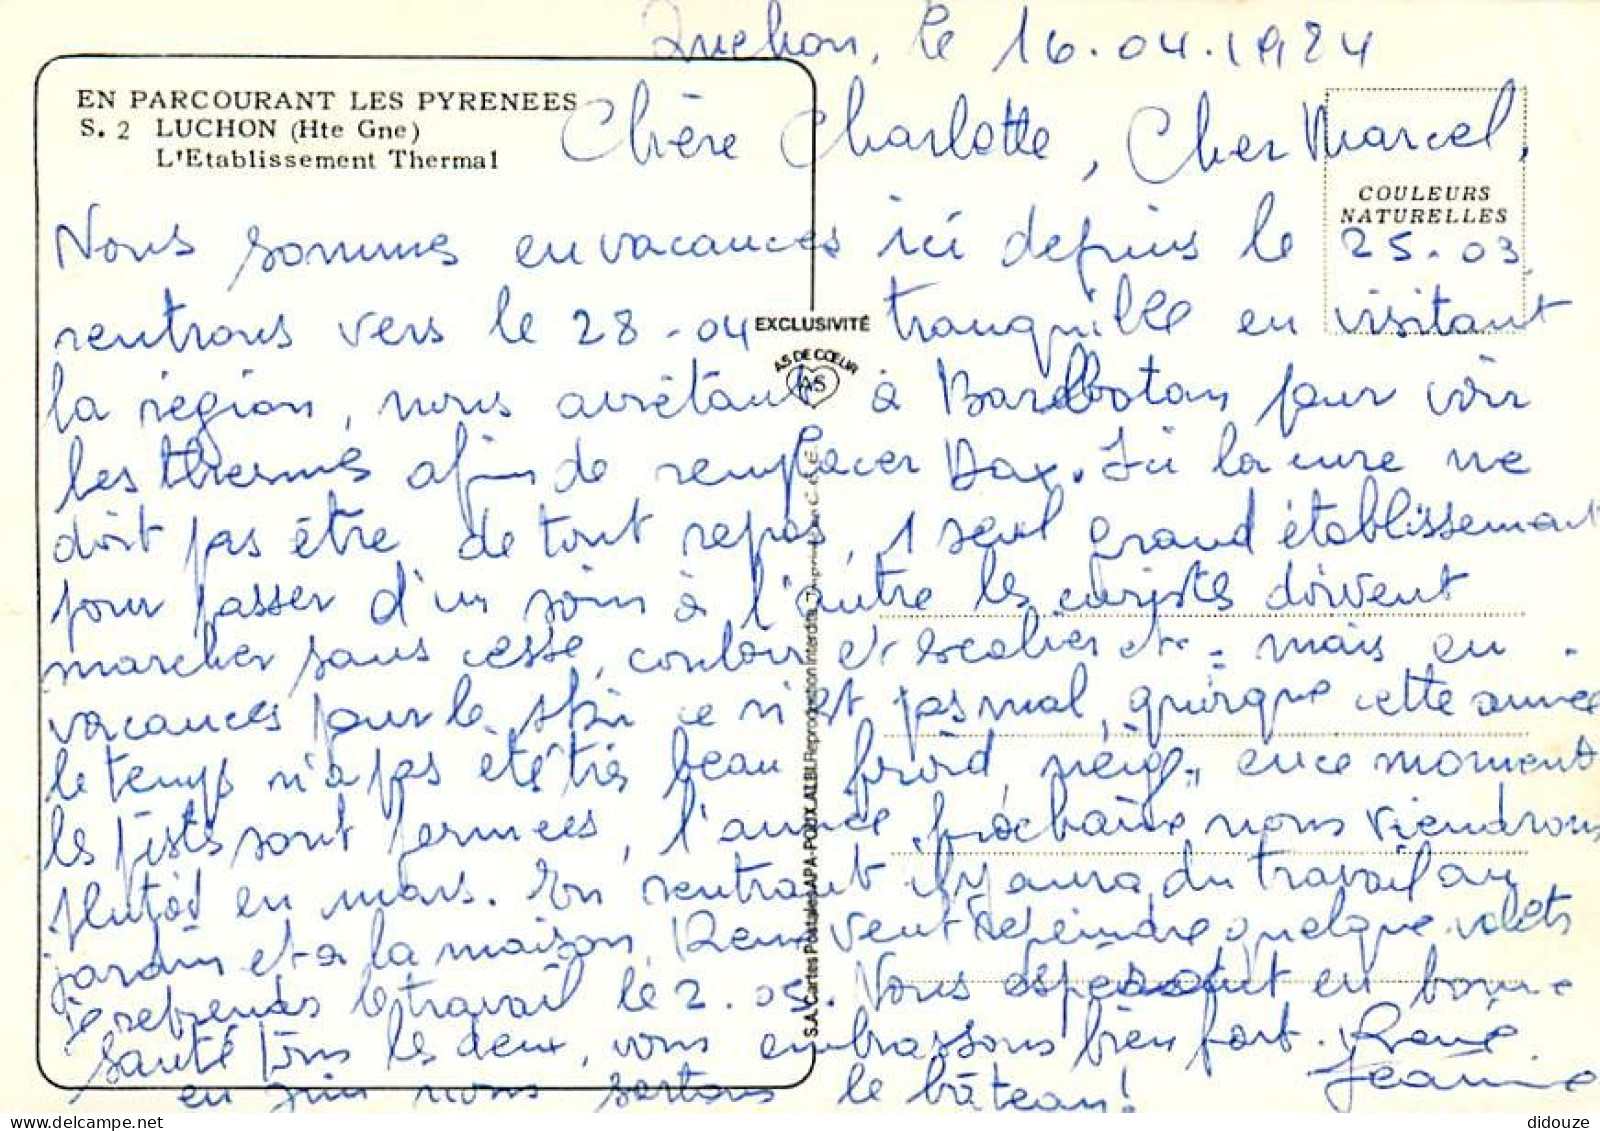 Luchon, le 16.04.1984
EN PARCOURANT LES PYRENEES
S. 2 LUCHON (Hte Gne)
L'Etablissement Thermal
Chère Charlotte, Cher Marcel,
COULEURS
NATURELLES
Nous sommes en vacances ici depuis le 25.03
rentrons vers le 28-04 tranquille en visitant
EXCLUSIVITÉ
AS DE CŒUR
AS
la région, nous arrêtant à Barbotan pour voir
les thermes afin de remplacer Dax. Ici la cure ne
doit pas être de tout repos, 1 seul grand établissement
pour passer d'un soin à l'autre les curistes doivent
marcher sans cesse, couloir et escalier etc - mais en
vacances pour le ski ce n'est pas mal, quoique cette année
le temps n'a pas été très beau froid, neige, en ce moment
les pistes sont fermées, l'année prochaine nous viendrons
plutôt en mars. En rentrant il y aura du travail au
jardin et à la maison, René veut repeindre quelque volets
je reprends le travail le 2.05. Nous espérons en bonne
santé tous les deux, vous embrassons bien fort. René
Jeanine
en juin nous sortons le bâteau!
S.A. Cartes Postales APA-POUX, ALBI. Reproduction Interdite.
didouze